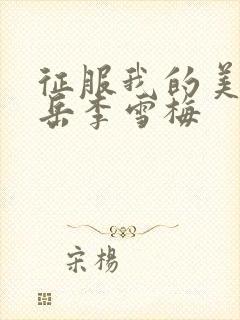 征服我的美
岳李雪梅
宋楊